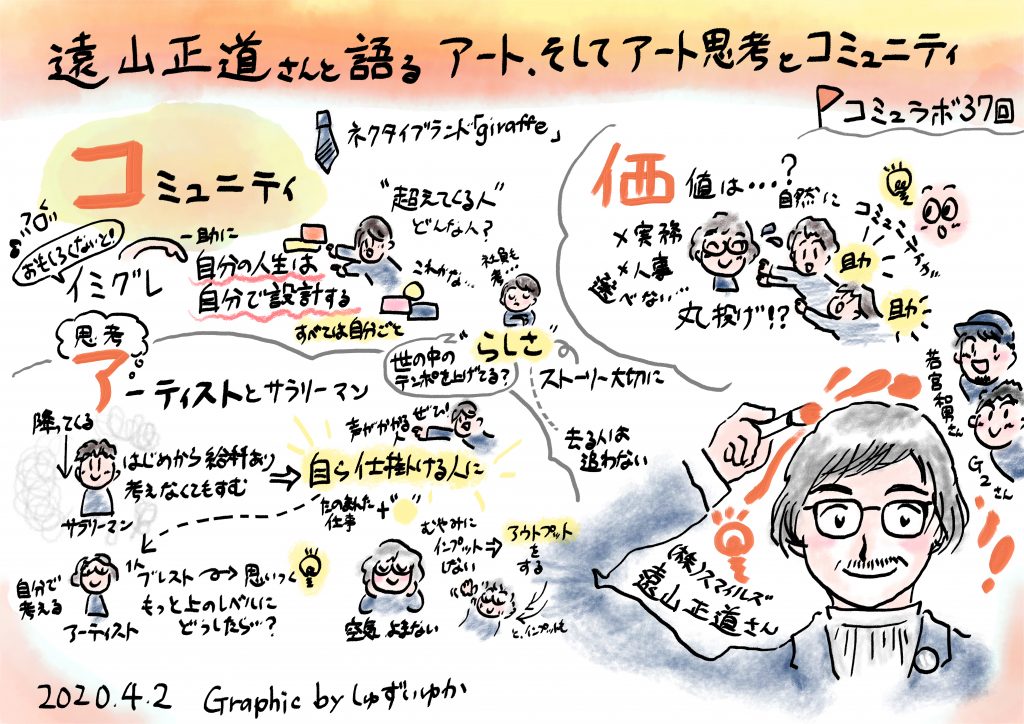 遠山正道さんと語る アート、そしてアート思考とコミュニティ
コミュラボ37回
ネクタイブランド「giraffe」
コミュニティ
おもしろくないと!
イミグレ
一助に
自分の人生は
自分で設計する
すべては自分ごと
"超えてくる人"
どんな人?
これかな…
社員も
考…
"らしさ"
世の中の
テンポを上げてる?
ストーリー大切に
去る人は
追わない
価値は…?
×実務
×人事
選べない…
丸投げ!?
自然に
コミュニティが
助
助
若宮和男さん
G2さん
思考
アーティストとサラリーマン
降ってくる
はじめから給料あり
考えなくてもすむ
サラリーマン
声がかかる
人
ぜひ!
自ら仕掛ける人に
たのまれた
仕事
+" "
自分で
考える
アーティスト
1人
ブレスト
思いつく
もっと上のレベルに
どうしたら…?
空気よまない
むやみに
インプット
しない
アウトプット
を
する
と、インプットも
(株)スマイルズ
遠山正道さん
2020.4.2 Graphic by しゅずいゆか